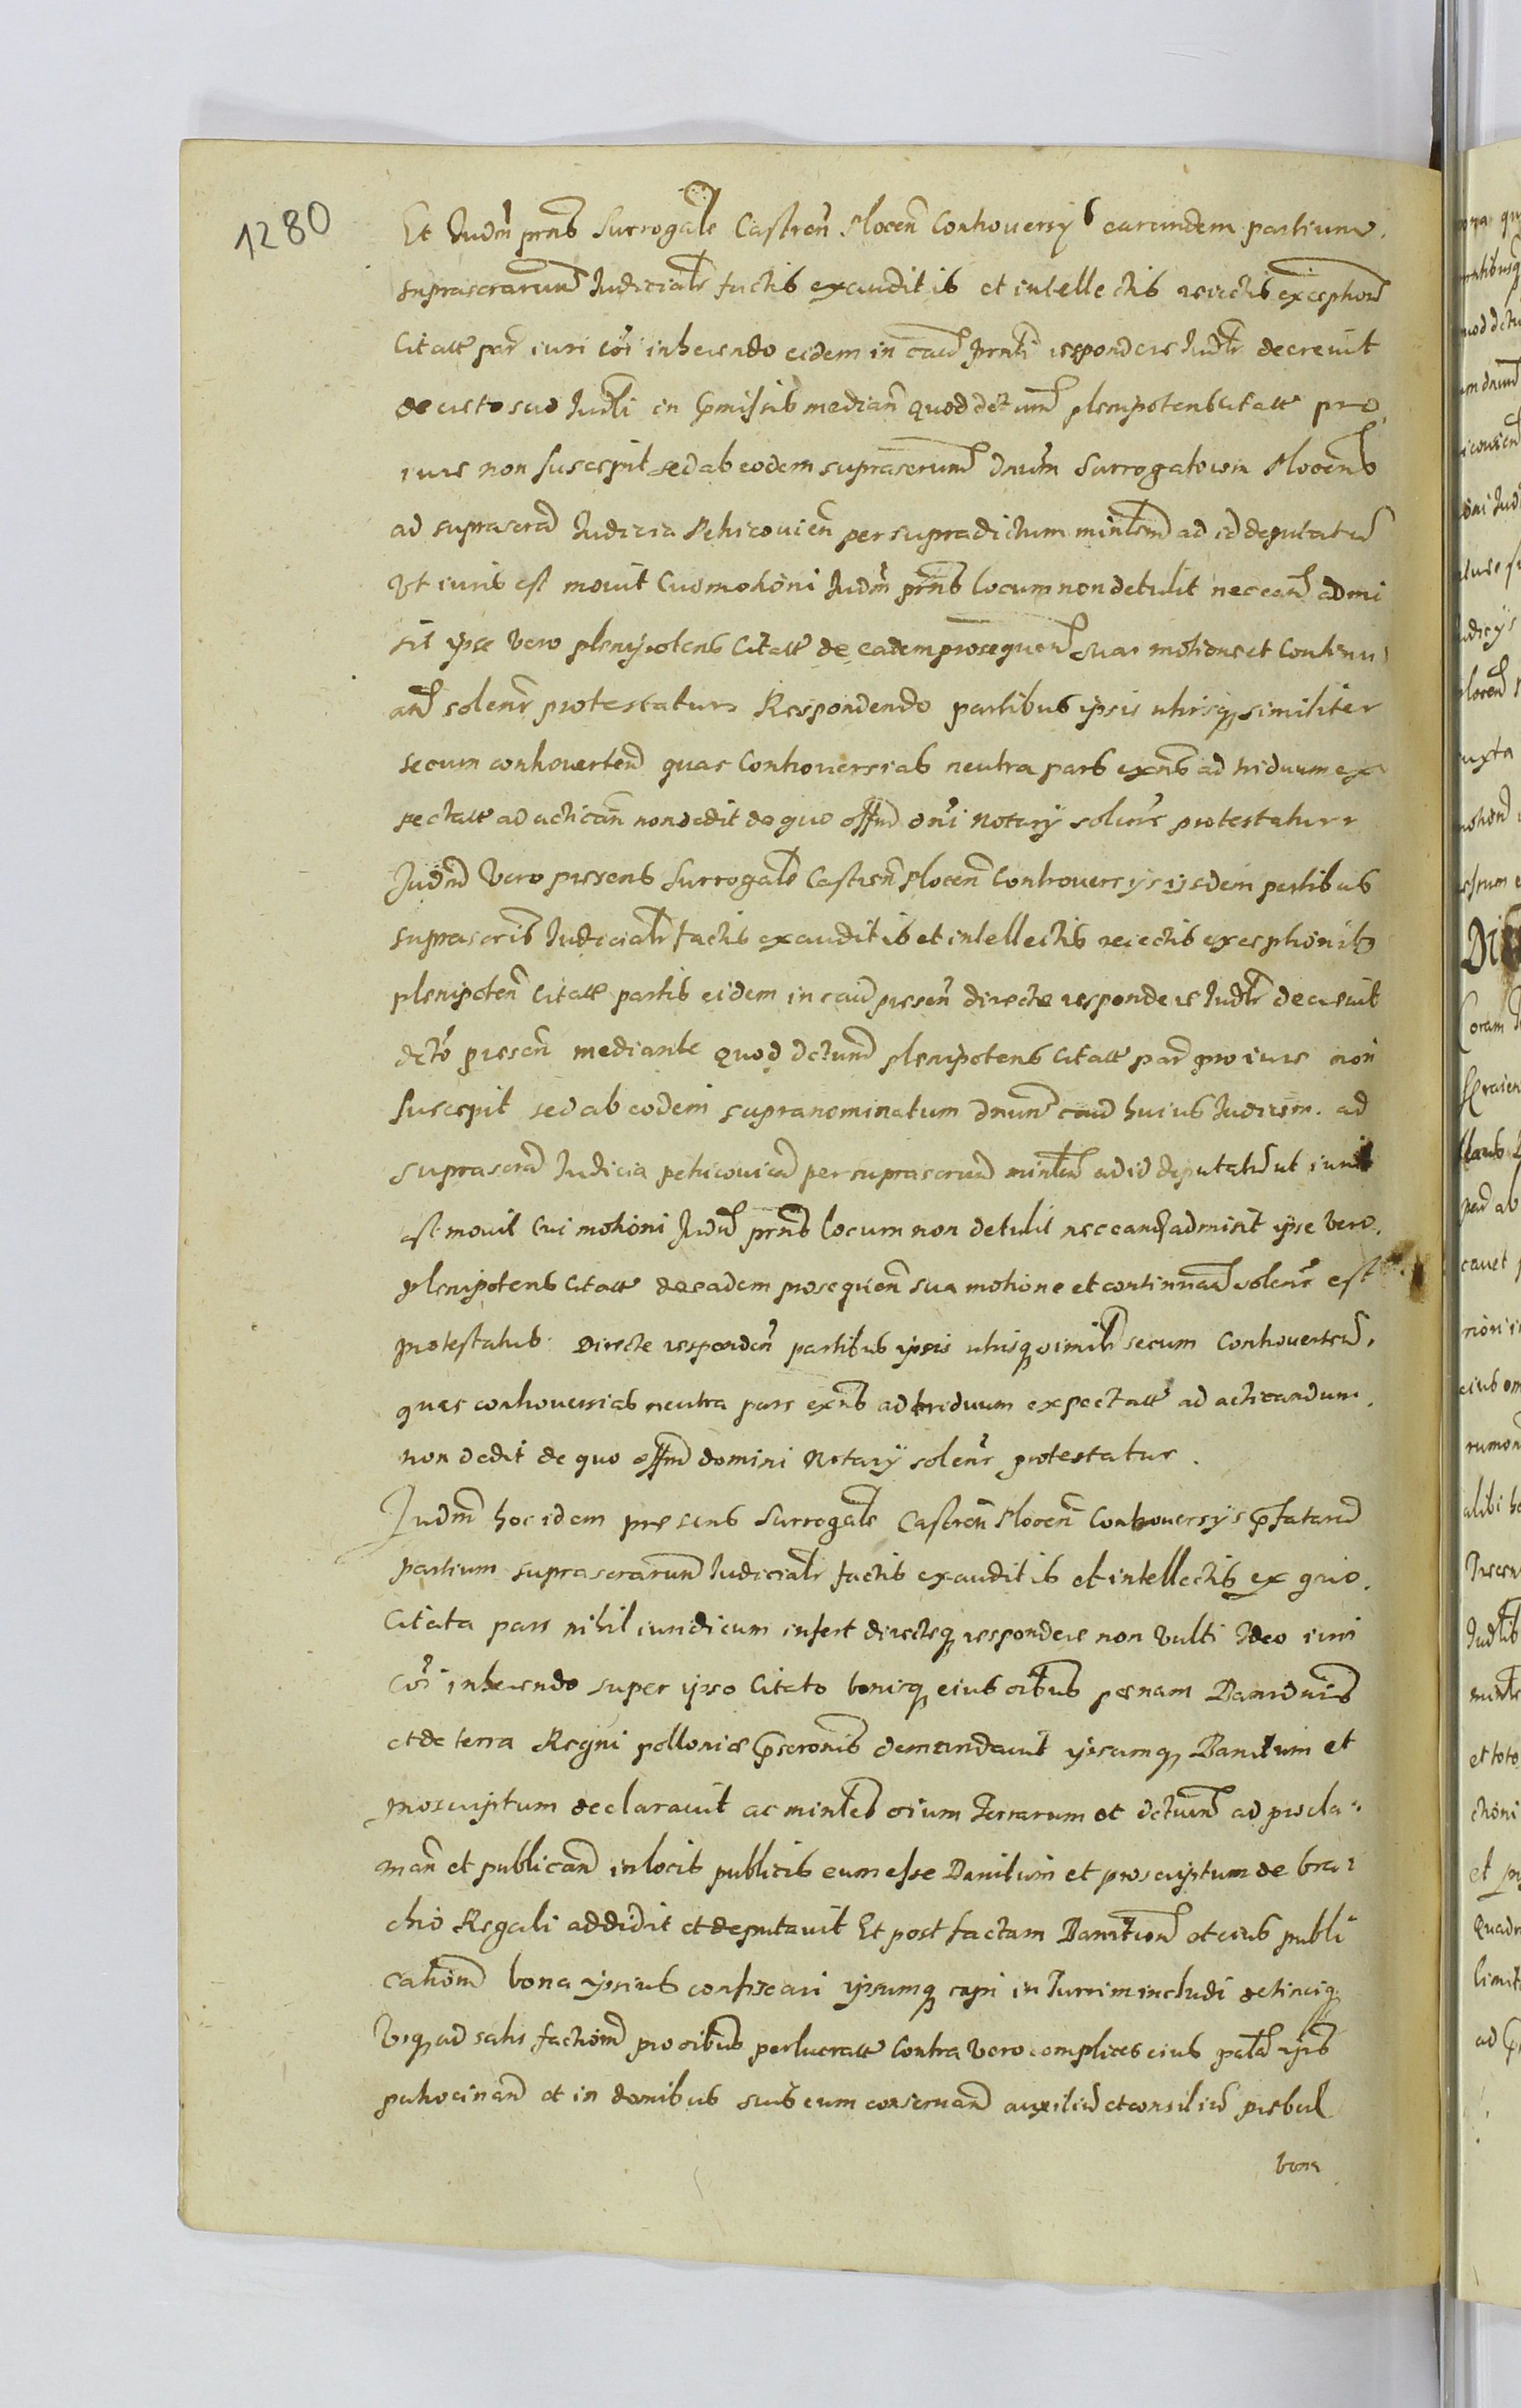 1280
Et Judm prns Surrogale Castren Plocen Controversys earundem partium
suprascrarum Judicialr factis exauditis et intellectis reiectis exception
Citate par iuri coi inherendo eidem in causa prnti respondere Judlr decrevit
decreto suo Judli in pmissis median quod decretum plenipotens Citate pro
iure non suscepit sed ab eodem suprascrum dnum Surrogatorem Plocens
ad suprascra Judicia Petricovien per supradictum minlem ad id deputatum
Vt iuris est movit Cui motioni Judm prns locum non detulit nec eam admi
sit ipse vero plenipotens Citate de eadem prosequen sua motione et Continu
and solenr protestatur Respondendo partibus ipsis utrisq similiter
secum controverten quas Controversias neutra pars exns ad triduum ex
pectate ad actican non dedit de quo offm dni Notary solenr protestatur
Judm Vero presens Surrogale Castren Plocen Controversys ijsdem partibus
suprascris Judicialr factis exauditis et intellectis reiectis exceptionib
plenipoten Citate partis eidem in causa presen directe respondere Judlr decrevit
dcto presen mediante quod dctum plenipotens Citate par pro iure non
suscepit sed ab eodem supranominatum dnum caus huius Judicem ad
suprascra Judicia petricovien per suprascrum minlem ad id deputatum ut iuris
est movit Cui motioni Judm prns locum non detulit nec eand admisit ipse vero
plenipotens Citate de eadem prosequen sua motione et continuan solenr est
protestatus Directe responden partibus ipsis utrisq simili secum Controverten
quas controversias neutra pars exns ad triduum expectate ad acticandum
non dedit de quo offm domini Notary solenr protestatur.
Judm hoc idem presens Surrogale Castren Plocen Controversys pfatarum
partium suprascrarum Judicialr factis exauditis et intellectis ex quo
Citata pars nihil iuridicum infert directeq respondere non vult Ideo iuri
coi inherendo super ipso Citato bonisq eius oibus poenam Bannionis
et de terra Regni polloniae pscronis demandavit ipsumq Banitum et
proscriptum declaravit ac minleb oium terrarum et dctuum ad procla
man et publican in locis publicis eum esse Banitum et proscriptum de bra
chio Regali addidit et deputavit Et post factam Banition et eius publi
cationem bona ipsius confiscari ipsumq capi in Turrim includi detineriq
Vsq ad satisfactionem pro oibus perlucrate Contra Vero complices eius
patrocinand et in domibus suis eum conservand auxilium et consilium prebul
bona